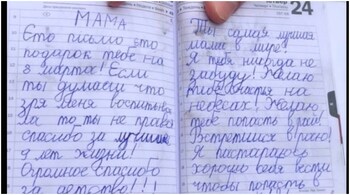 МАМА
Єто письмо єто
подарок тебе на
8 марта! Если
ты думаеш что
зря меня воспитывала
За то ты не права
спасибо за лучшие
9 лет жизни!
Огромное Спасибо
за детство!!!
24
Ты самая лучшая
мама в мире!
Я тебя никогда не
забуду! Желаю
на
небесах! Желаю
тебе попасть в рай!
Встретимся в раю!
Я пастараюсь
хорошо себя вести
чтобы попасть